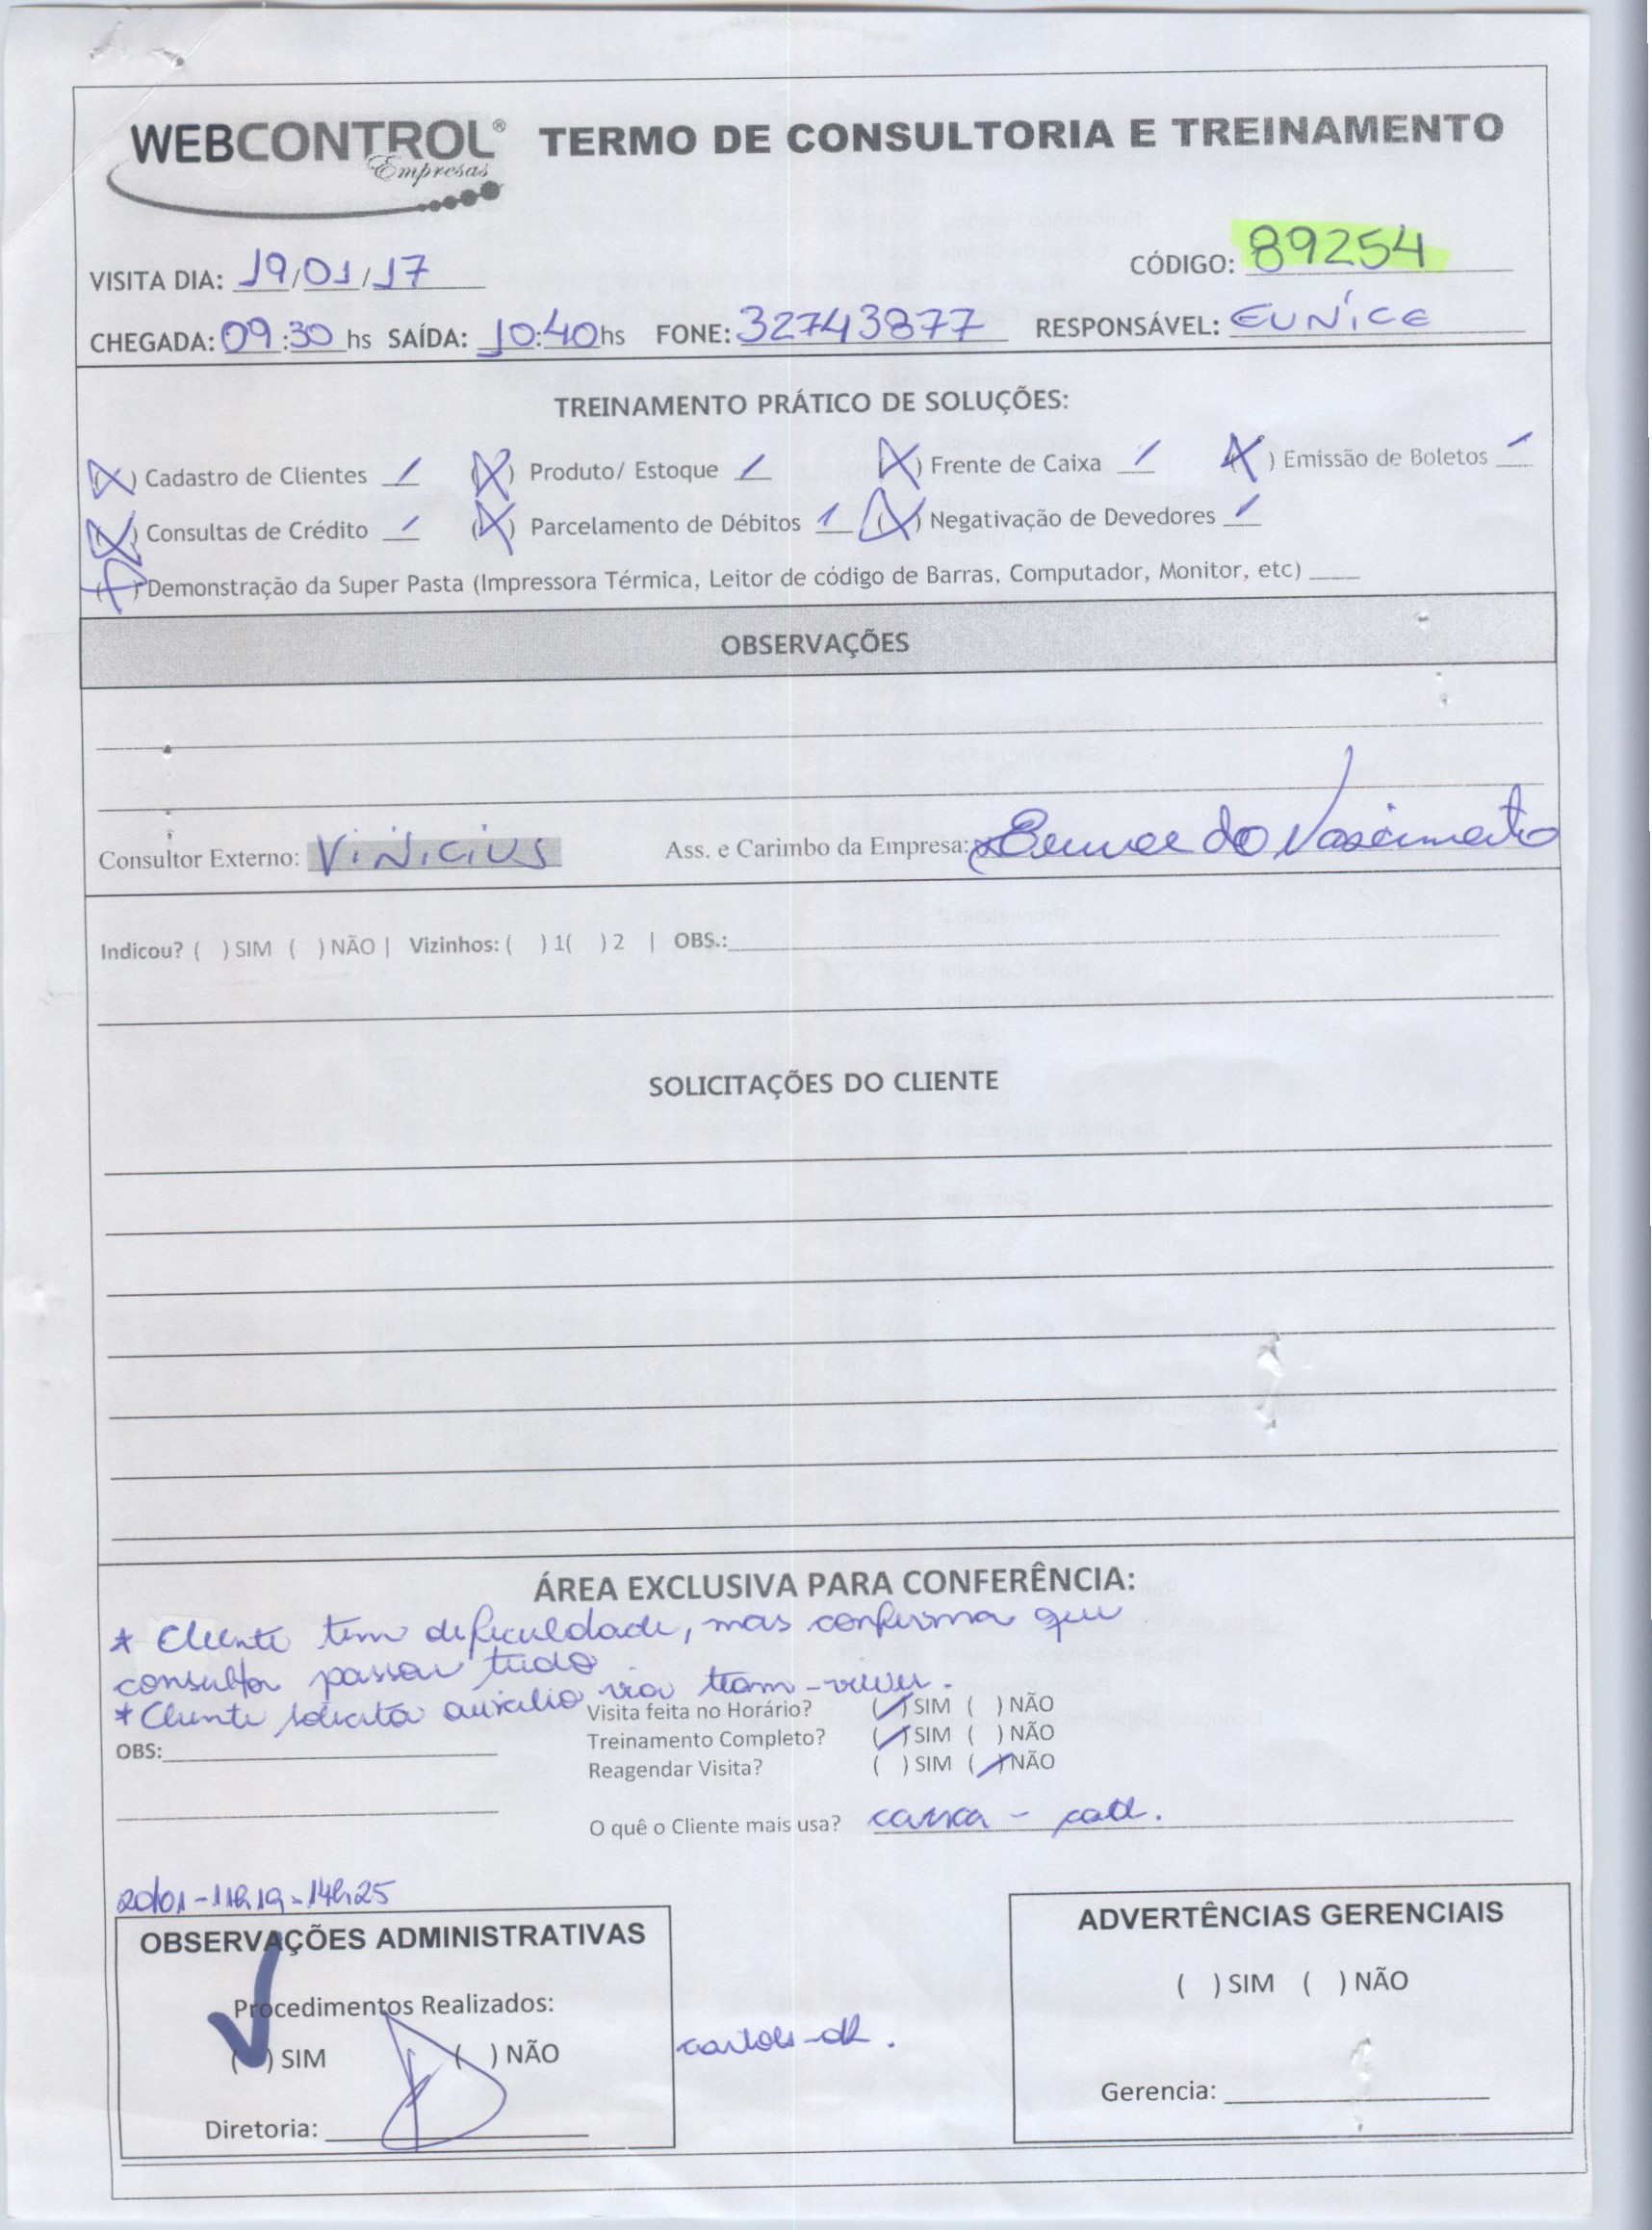 WEBCONTROL® Empresas TERMO DE CONSULTORIA E TREINAMENTO
VISITA DIA: 19/01/17 CÓDIGO: 89254
CHEGADA: 09:30 hs SAÍDA: 10:40 hs FONE: 32743877 RESPONSÁVEL: EUNICE
TREINAMENTO PRÁTICO DE SOLUÇÕES:
(X) Cadastro de Clientes / (X) Produto/ Estoque / (X) Frente de Caixa / (X) Emissão de Boletos /
(X) Consultas de Crédito / (X) Parcelamento de Débitos 1 (X) Negativação de Devedores /
(X) Demonstração da Super Pasta (Impressora Térmica, Leitor de código de Barras, Computador, Monitor, etc) ____
OBSERVAÇÕES
Consultor Externo: Vinicius Ass. e Carimbo da Empresa: Eunice do Nascimento
Indicou? ( ) SIM ( ) NÃO | Vizinhos: ( ) 1( ) 2 | OBS.:
SOLICITAÇÕES DO CLIENTE
ÁREA EXCLUSIVA PARA CONFERÊNCIA:
* Cliente tem dificuldade, mas confirma que
consultor passou tudo
* Cliente solicita auxilio via team-viewer.
Visita feita no Horário? (/) SIM ( ) NÃO
Treinamento Completo? (/) SIM ( ) NÃO
OBS:
Reagendar Visita? ( ) SIM (/) NÃO
O quê o Cliente mais usa? caixa -
20/01 - 11h19 - 14h25
OBSERVAÇÕES ADMINISTRATIVAS
Procedimentos Realizados:
(✓) SIM ( ) NÃO
Diretoria:
ADVERTÊNCIAS GERENCIAIS
( ) SIM ( ) NÃO
Gerencia: